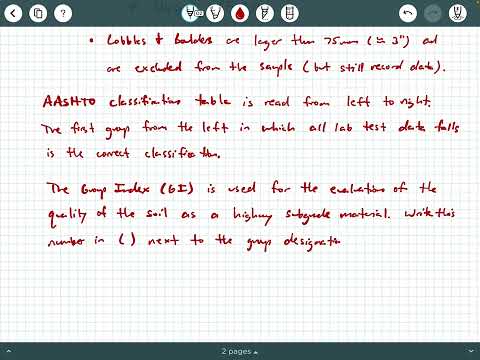 • Cobbles & Boulders are larger than 75mm (≈ 3") and
are excluded from the sample (but still record data).
AASHTO classification table is read from left to right.
The first group from the left in which all lab test data falls
is the correct classification.
The Group Index (GI) is used for the evaluation of the
quality of the soil as a highway subgrade material. Write this
number in ( ) next to the group designati
2 pages